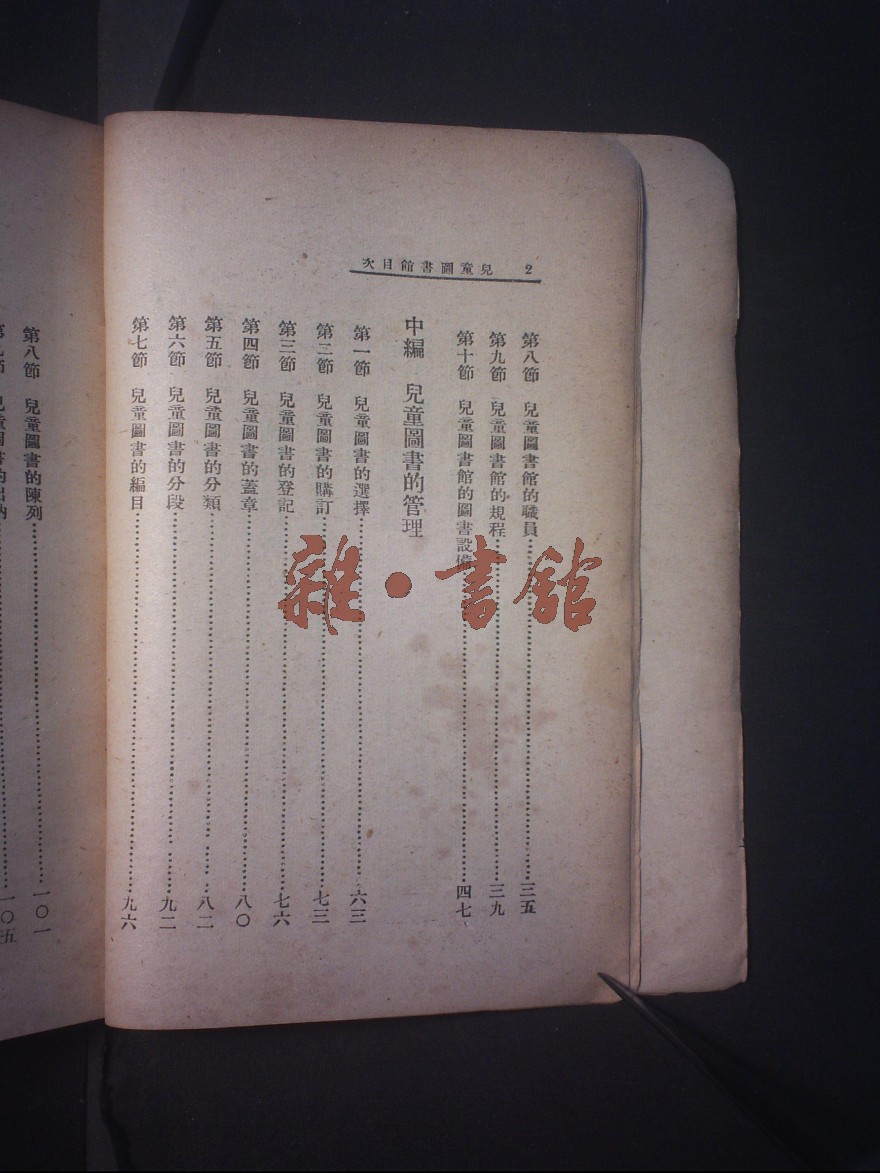 2 兒童圖書館目次
第八節 兒童圖書館的職員……三五
第九節 兒童圖書館的規程……三九
第十節 兒童圖書館的圖書設備……四七
中編 兒童圖書的管理
第一節 兒童圖書的選擇……六三
第二節 兒童圖書的購訂……七三
第三節 兒童圖書的登記……七六
第四節 兒童圖書的蓋章……八〇
第五節 兒童圖書的分類……八二
第六節 兒童圖書的分段……九二
第七節 兒童圖書的編目……九六
第八節 兒童圖書的陳列……一〇一
一〇五
雜·書館